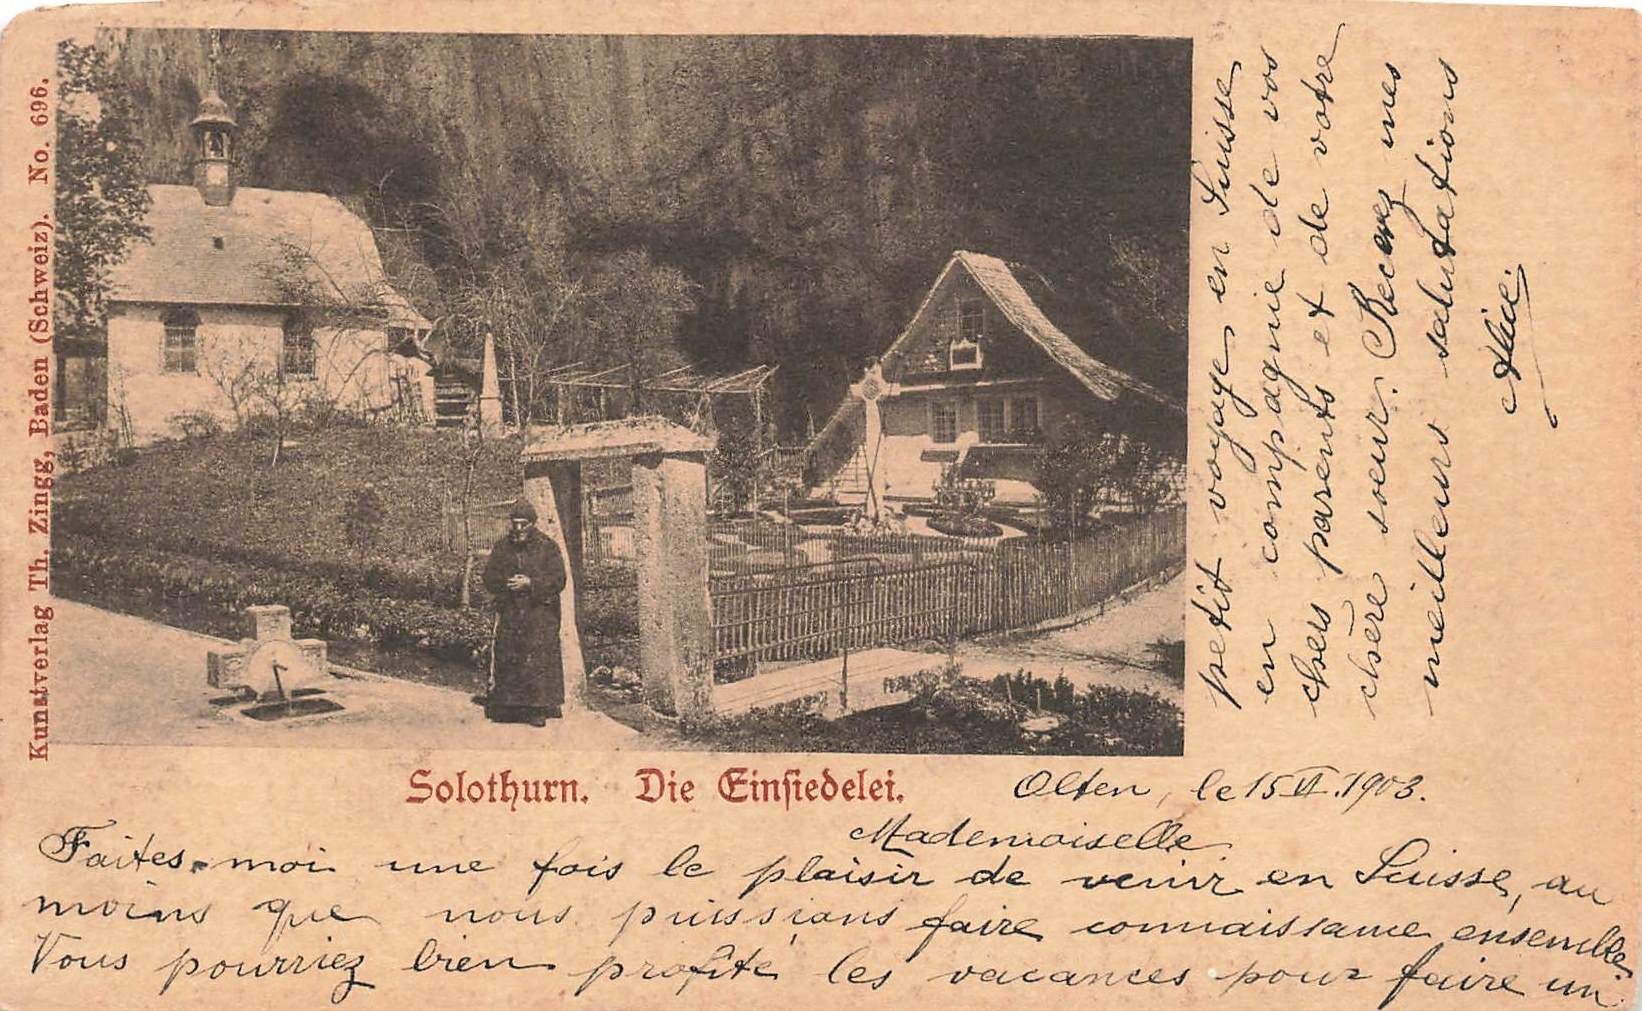 Kunstverlag Th. Zingg, Baden (Schweiz). No. 696.
Solothurn. Die Einsiedelei.
Olten, le 15 VI. 1903.
Mademoiselle
Faites-moi une fois le plaisir de venir en Suisse, au
moins que nous puissions faire connaissance ensemble
Vous pourriez bien profité les vacances pour faire un
petit voyage en Suisse
en compagnie de vos
chers parents et de votre
chère soeur. Recevez mes
meilleurs salutations
Alice.